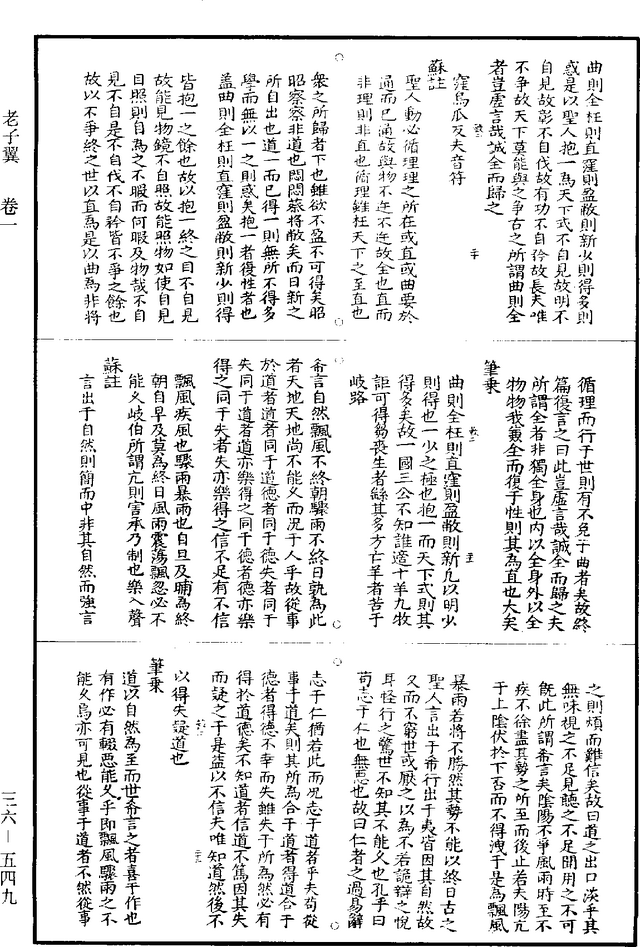 曲則全枉則直窪則盈敝則新少則得多則
惑是以聖人抱一為天下式不自見故明不
自見故彰不自伐故有功不自矜故長夫唯
不爭故天下莫能與之爭古之所謂曲則全
者豈虛言哉誠全而歸之
窪烏瓜反夫音符
蘇註
聖人動必循理理之所在或直或曲要於
通而已通故與物不迕不迕故全也直而
非理則非直也循理雖枉天下之至直也
衆之所歸者下也雖欲不盈不可得矣昭
昭察察非道也悶悶若將敝矣而日新之
所自出也道一而已得一則無所不得多
學而無以一之則惑矣抱一者復性者也
蓋曲則全枉則直窪則盈敝則新少則得
皆抱一之餘也故以抱一終之目不自見
故能見物鏡不自照故能照物如使自見
自照則自為之不暇而何暇及物哉不自
見不自是不自伐不自矜皆不爭之餘也
故以不爭終之世以直為是以曲為非將
循理而行于世則有不免于曲者矣故終
篇復言之曰此豈虛言哉誠全而歸之夫
所謂全者非獨全身也内以全身外以全
物物我兼全而復于性則其為直也大矣
筆乘
曲則全枉則直窪則盈敝則新凡以明少
則得也一少之極也抱一而天下式則其
得多矣故一國三公不知誰適十羊九牧
詎可得芻喪生者繇其多方亡羊者苦于
岐路
希言自然飄風不終朝驟雨不終日孰為此
者天地天地尚不能久而況于人乎故從事
於道者道者同于道德者同于德失者同于
失同于道者道亦樂得之同于德者德亦樂
得之同于失者失亦樂得之信不足有不信
飄風疾風也驟雨暴雨也自旦及晡為終
朝自早及莫為終日風雨震蕩飄忽必不
能久岐伯所謂亢則害承乃制也樂入聲
蘇註
言出于自然則簡而中非其自然而強言
之則煩而難信矣故曰道之出口淡乎其
無味視之不足見聽之不足聞用之不可
旣此所謂希言矣陰陽不爭風雨時至不
疾不徐盡其勢之所至而後止若夫陽亢
于上陰伏於下否而不得洩于是為飄風
暴雨若將不勝然其勢不能以終日古之
聖人言出于希行出于夷皆因其自然故
久而不窮世或厭之以為不若詭辯之悅
耳怪行之驚世不知其不能久也孔子曰
苟志于仁也無惡也故曰仁者之過易辭
志于仁猶若此而況志于道者乎夫苟從
事于道矣則其所為合于道者得道合于
德者得德不幸而失雖失于所為然必有
得於道德矣不知道者信道不篤因其失
而疑之于是益以不信夫唯知道然後不
以得失疑道也
筆乘
道以自然為至而世希言之者喜于作也
有作必有輟惡能久乎即飄風驟雨之不
能久烏亦可見也從事于道者不然從事
老子翼 卷一
三六—五四九